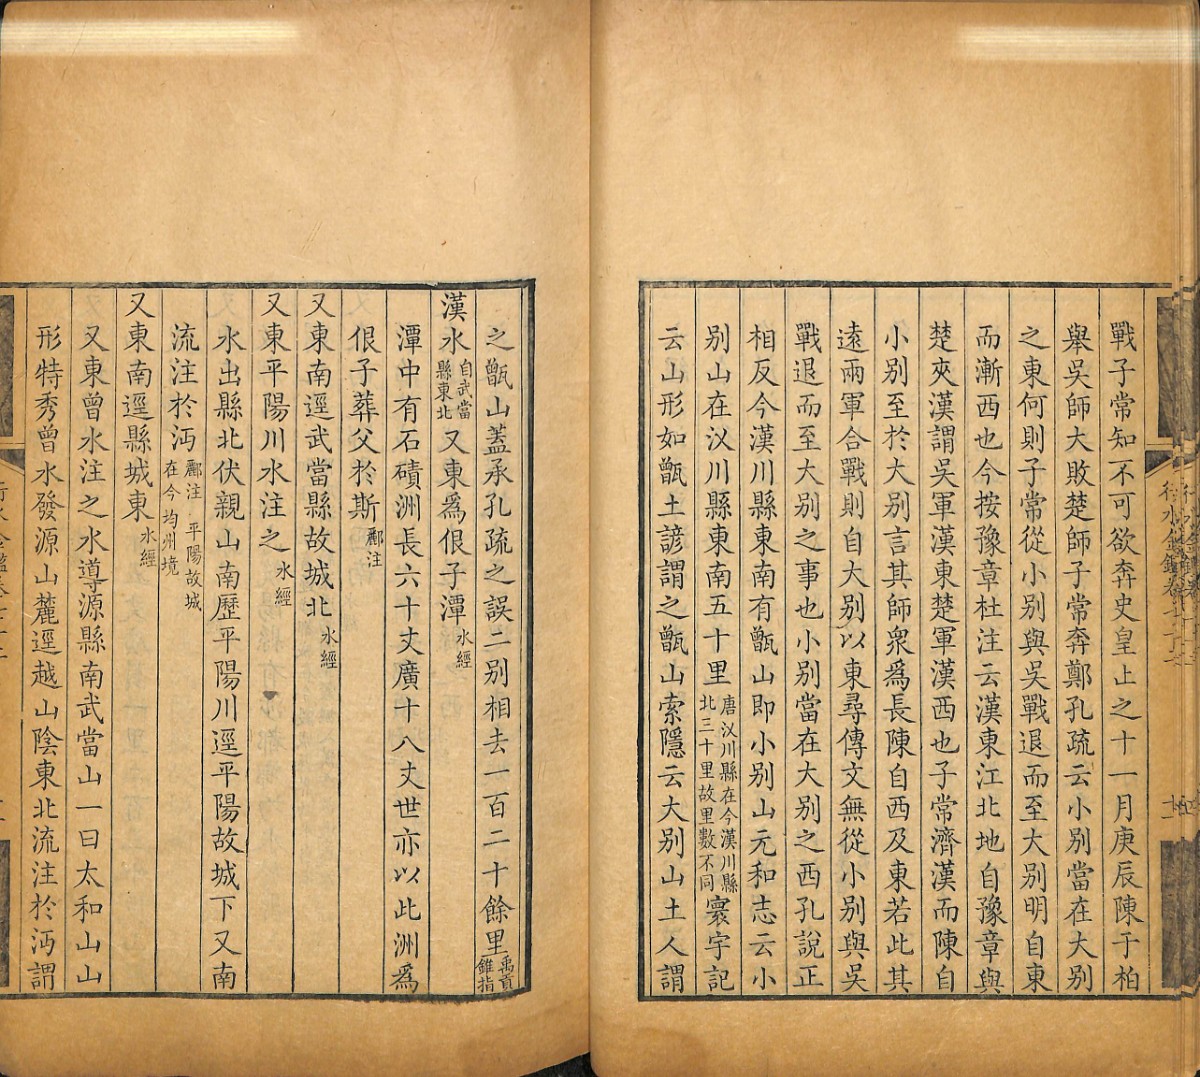 戰子常知不可欲奔史皇止之十一月庚辰陳于柏
舉吳師大敗楚師子常奔鄭孔疏云小別當在大別
之東何則子常從小別與吳戰退而至大別明自東
而漸西也今按豫章杜注云漢東江北地自豫章與
楚夾漢謂吳軍漢東楚軍漢西也子常濟漢而陳自
小別至於大別言其師衆爲長陳自西及東若此其
遠兩軍合戰則自大別以東尋傳文無從小別與吳
戰退而至大別之事也小別當在大別之西孔說正
相反今漢川縣東南有甑山即小別山元和志云小
別山在汊川縣東南五十里
唐汊川縣在今漢川縣
北三十里故里數不同
寰宇記
云山形如甑土諺謂之甑山索隱云大別山土人謂
之甑山蓋承孔疏之誤二別相去一百二十餘里
禹貢
錐指
漢水
自武當
縣東北
又東爲佷子潭
水經
潭中有石磧洲長六十丈廣十八丈世亦以此洲爲
佷子葬父於斯
酈注
又東南逕武當縣故城北
水經
又東平陽川水注之
水經
水出縣北伏親山南歷平陽川逕平陽故城下又南
流注於沔
酈注 平陽故城
在今均州境
又東南逕縣城東
水經
又東曾水注之水導源縣南武當山一曰太和山山
形特秀曾水發源山麓逕越山陰東北流注於沔謂